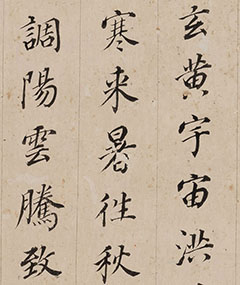 玄黃宇宙洪
寒来暑往秋
調陽雲騰致